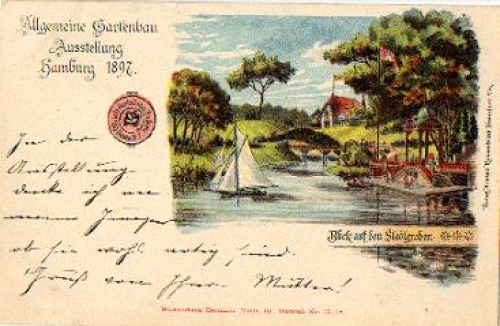 Allgemeine Gartenbau
Ausstellung
Hamburg 1897.
In der
Ausstellung
denke ich an
meine Jungen
ob sie wohl artig sind.
Gruß von Ihrer Mutter!
Blick auf den Stadtgraben.